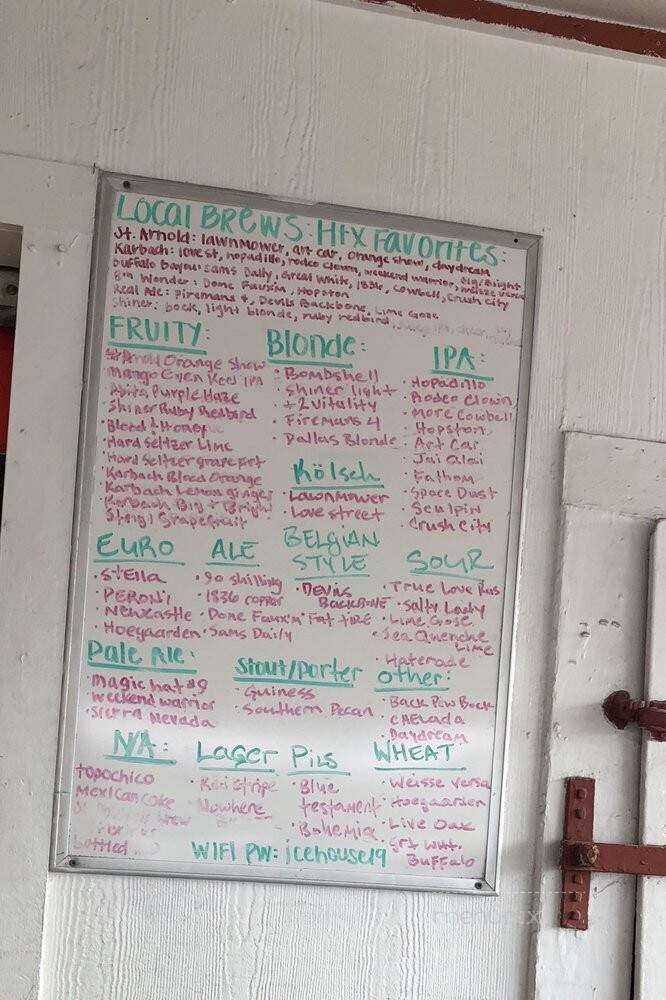 LOCAL BREWS: HTX Favorites:
St. Arnold: lawnmower, art car, orange show, daydream
Karbach: lovest, hopadillo, rodeo clown, weekend warrior, big & bright
Buffalo Bayou: Sams Daily, Great White, 1836, Cowbell, Crush City
8th Wonder: Dome Fauxm, Hopston
Real Ale: firemans 4, Devils Backbone, Lime Gose
Shiner: bock, light blonde, ruby redbird
FRUITY:
St Arnold Orange Show
Mango Even Keel IPA
Abita Purple Haze
Shiner Ruby Redbird
Blood & Honey
Hard Seltzer Lime
Hard Seltzer grapefrt
Karbach Blood Orange
Karbach Lemon ginger
Karbach Big & Bright
Steigl Grapefruit
Blonde:
Bombshell
Shiner light
+2 Vitality
Firemans 4
Dallas Blonde
Kölsch
Lawnmower
Love street
IPA:
Hopadillo
Rodeo Clown
More Cowbell
Hopston
Art Car
Jai Alai
Fathom
Space Dust
Sculpin
Crush City
EURO
Stella
PERONI
Newcastle
Hoegaarden
ALE
90 shilling
1836 copper
Dome Faux'm
Sams Daily
BELGIAN
STYLE
DEVILS
BACKBONE
FAT TIRE
SOUR
True Love Ras
Salty Lady
Lime Gose
Sea Quenche
LIME
Haterade
Pale Ale:
magic hat #9
weekend warrior
Sierra Nevada
Stout/porter
Guiness
Southern Pecan
other:
Back Pew Bock
CHELADA
Daydream
N/A:
topochico
Mexican Coke
brew
bottled
Lager
Red Stripe
Nowhere
Pils
Blue
testament
Bohemia
WHEAT
Weisse Versa
Hoegaarden
Live Oak
Grt Wht.
BUFFALO
WIFI PW: icehouse19